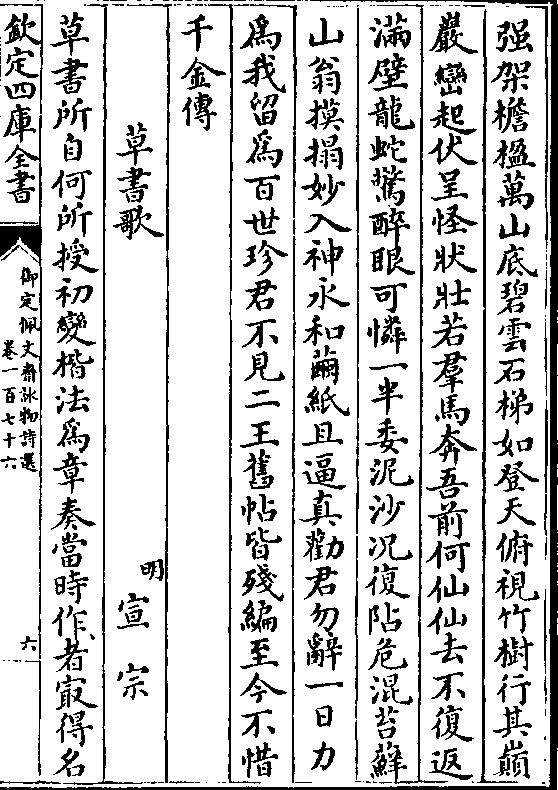 强架檐楹萬山底碧雲石梯如登天俯視竹樹行其巔
巖巒起伏呈怪狀壯若羣馬奔吾前何仙仙去不復返
滿壁龍蛇驚醉眼可憐一半委泥沙况復阽危混苔蘚
山翁摸搨妙入神永和繭紙且逼真勸君勿辭一日力
為我留為百世珍君不見二王舊帖皆殘編至今不惜
千金傳
草書歌
明 宣宗
草書所自何所授初變楷法為章奏當時作者㝡得名
欽定四庫全書
御定佩文齋詠物詩選
卷一百七十六
六